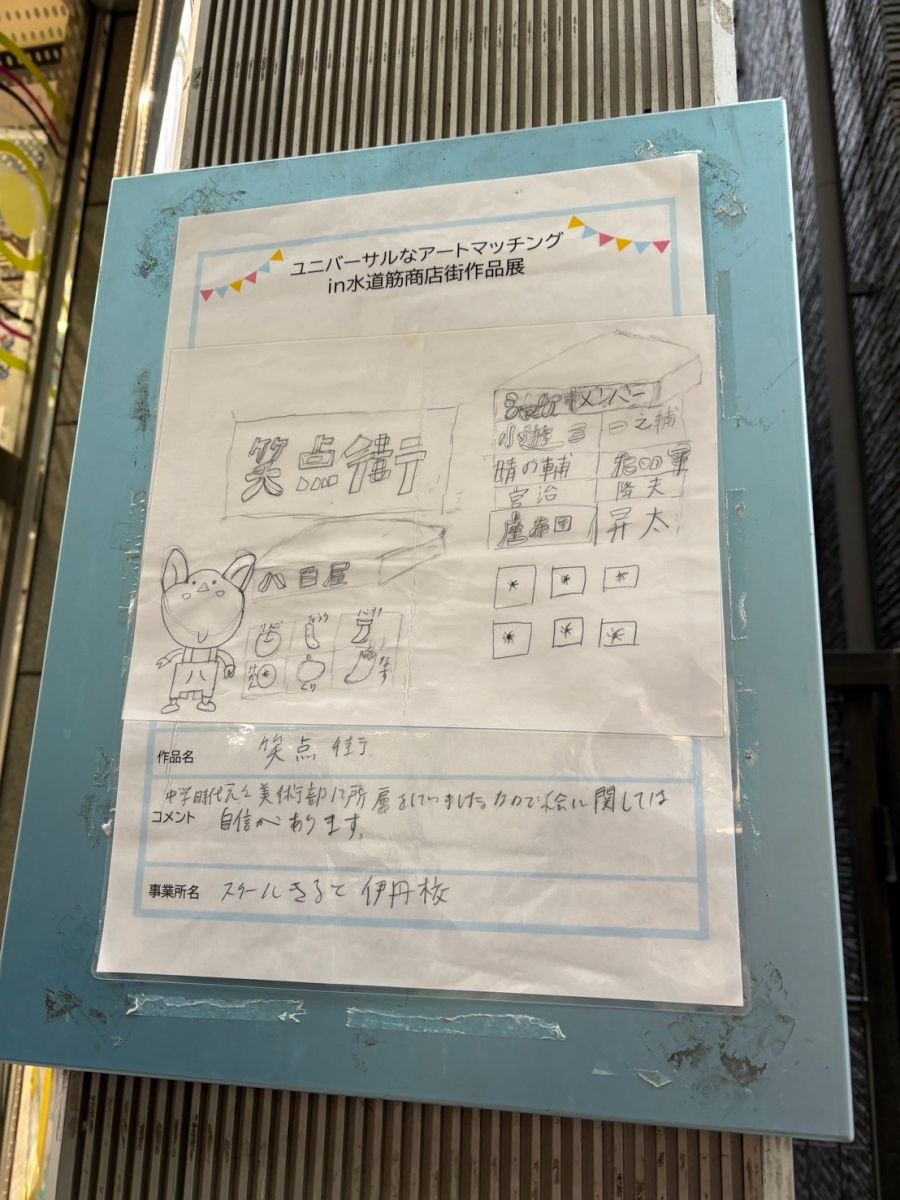 ユニバーサルなアートマッチング
in水道筋商店街作品展
笑点街
八百屋
八
りんご
バナナ
みかん
くり
なす
メンバー
小遊三
一之輔
晴の輔
宮治
隆夫
座布団
昇太
作品名
笑点街
コメント
中学時代元々美術部に所属をしていましたなので絵に関しては
自信があります。
事業所名
スクールきると 伊丹校